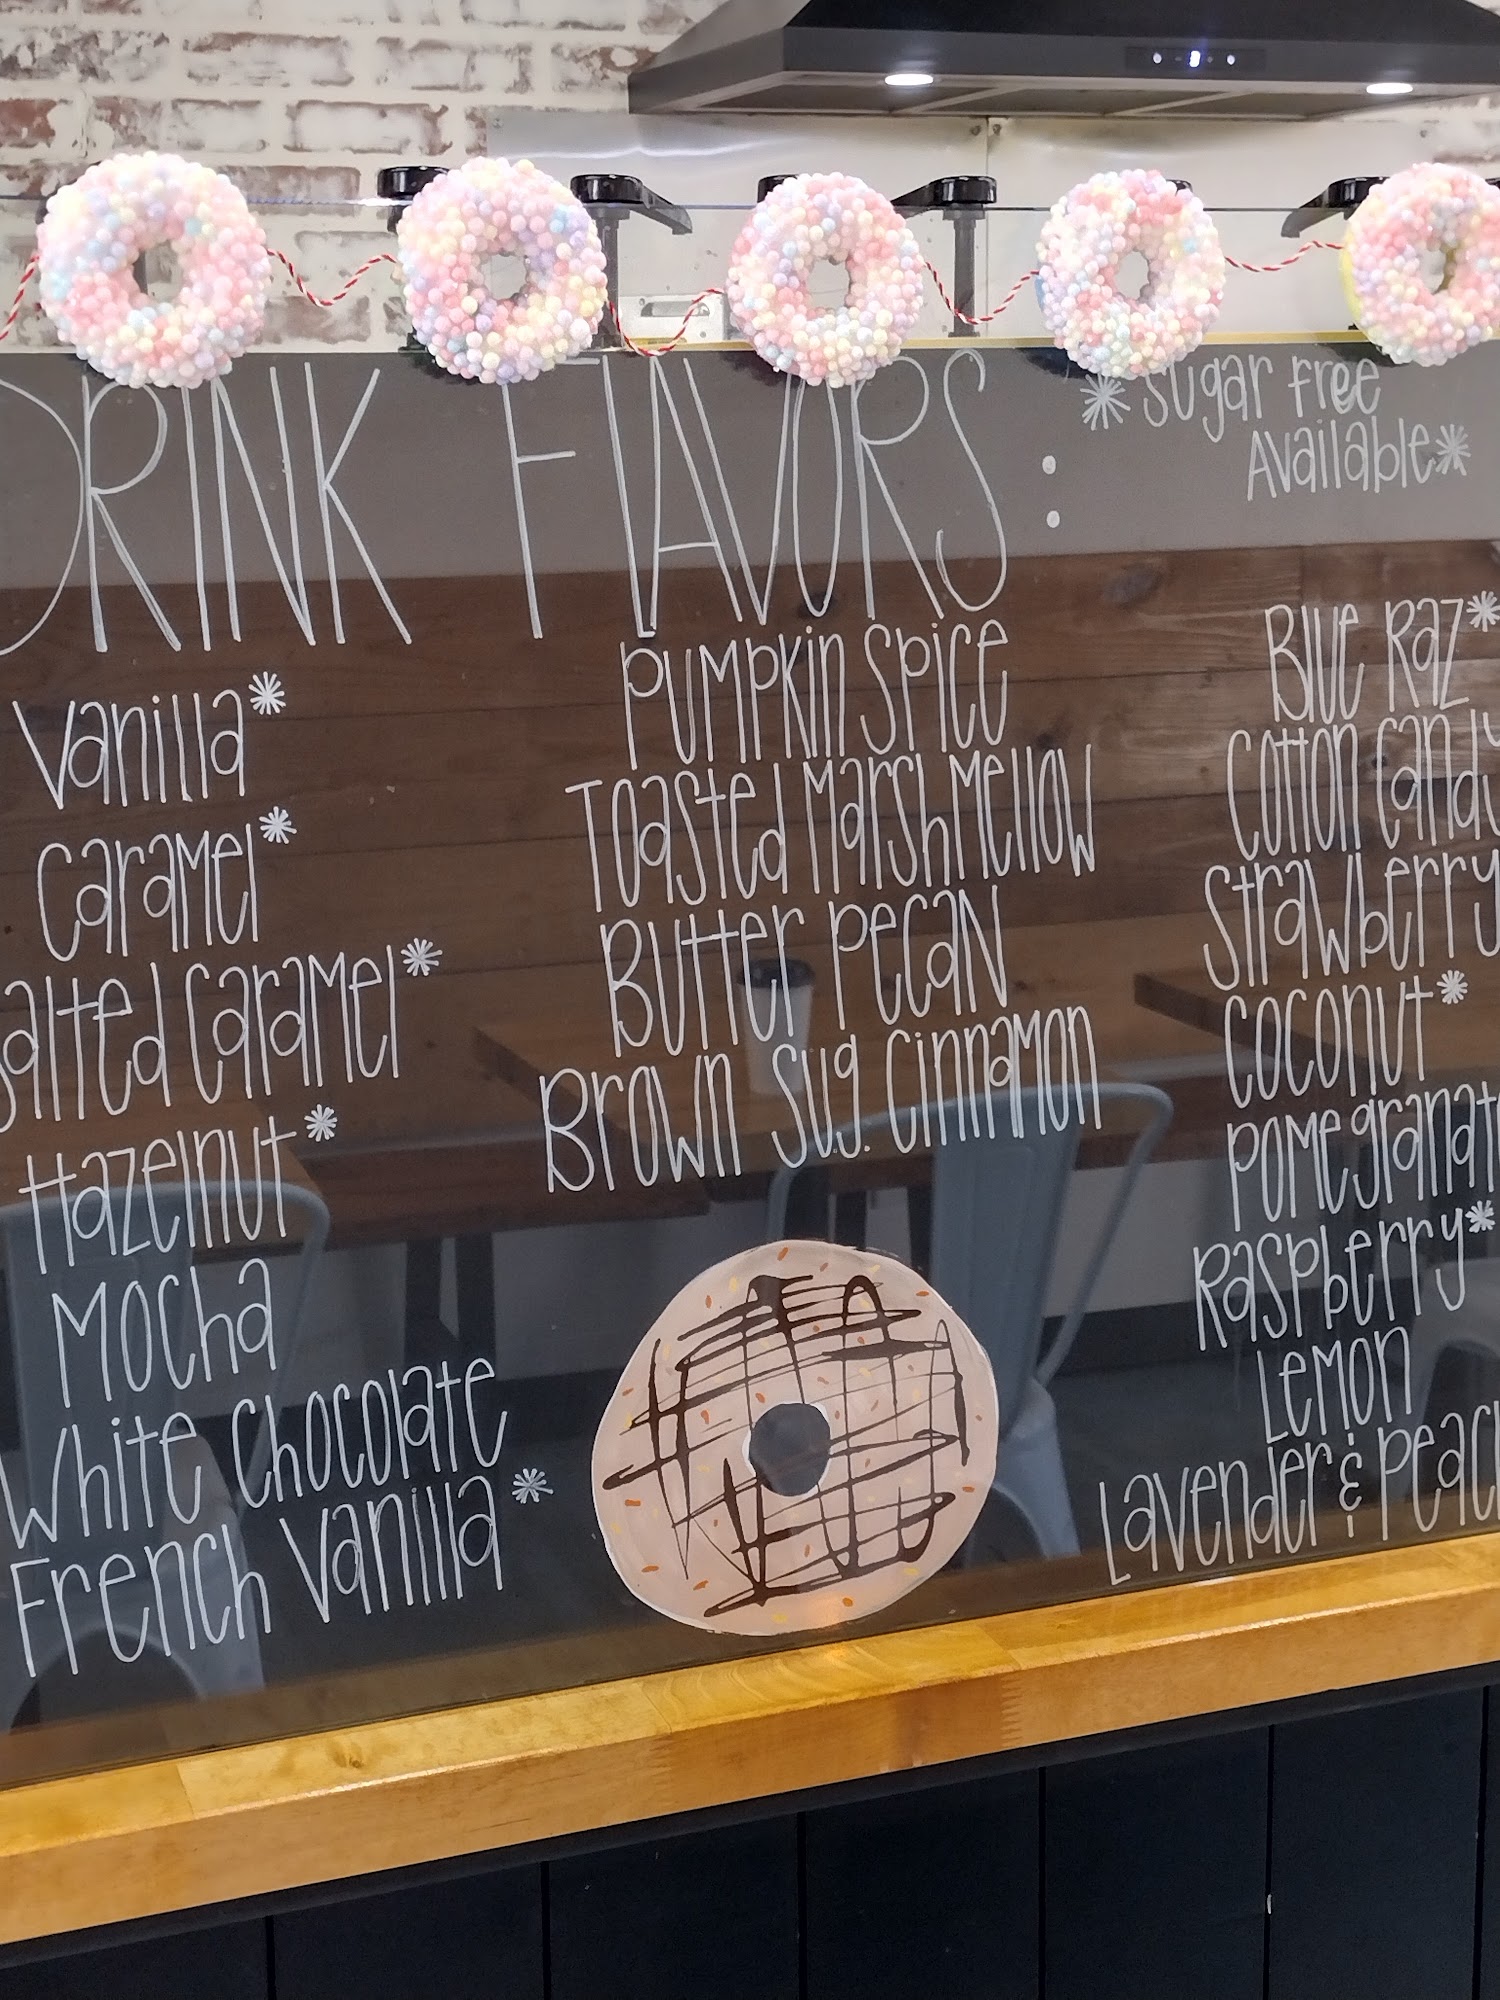 DRINK FLAVORS:
*Sugar Free
Available*
Vanilla*
Caramel*
Salted Caramel*
Hazelnut*
Mocha
White Chocolate
French Vanilla*
Pumpkin Spice
Toasted Marshmellow
Butter Pecan
Brown Sug. Cinnamon
Blue Raz*
Cotton Candy
Strawberry
Coconut*
Pomegranate
Raspberry*
Lemon
Lavender & Peach